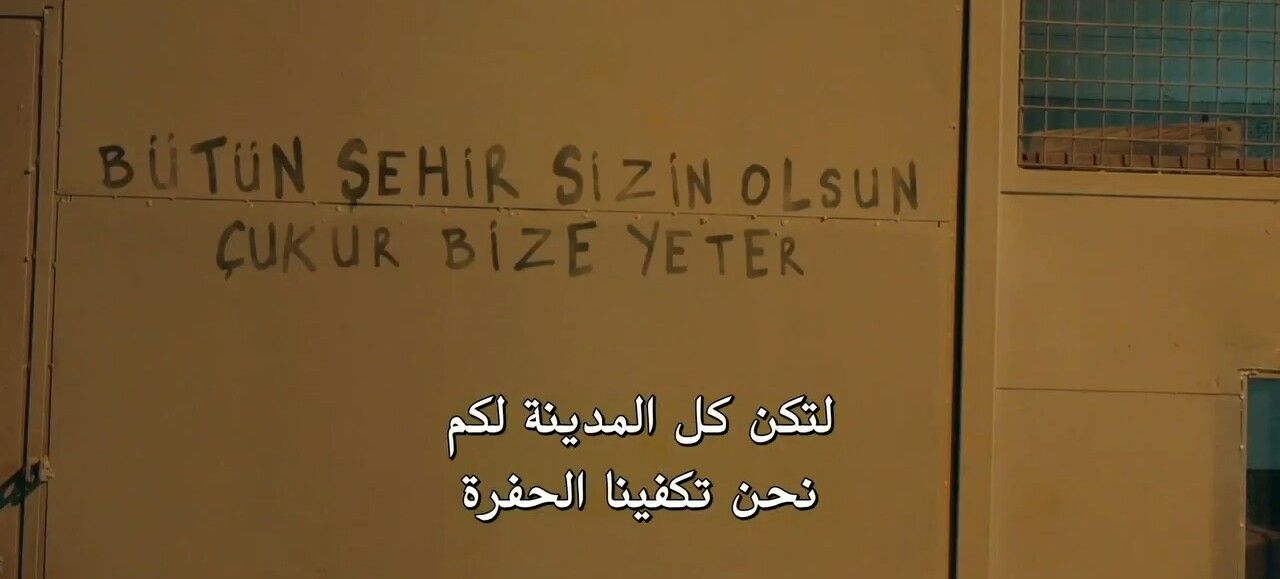 BÜTÜN ŞEHİR SİZİN OLSUN
ÇUKUR BİZE YETER
لتكن كل المدينة لكم
نحن تكفينا الحفرة